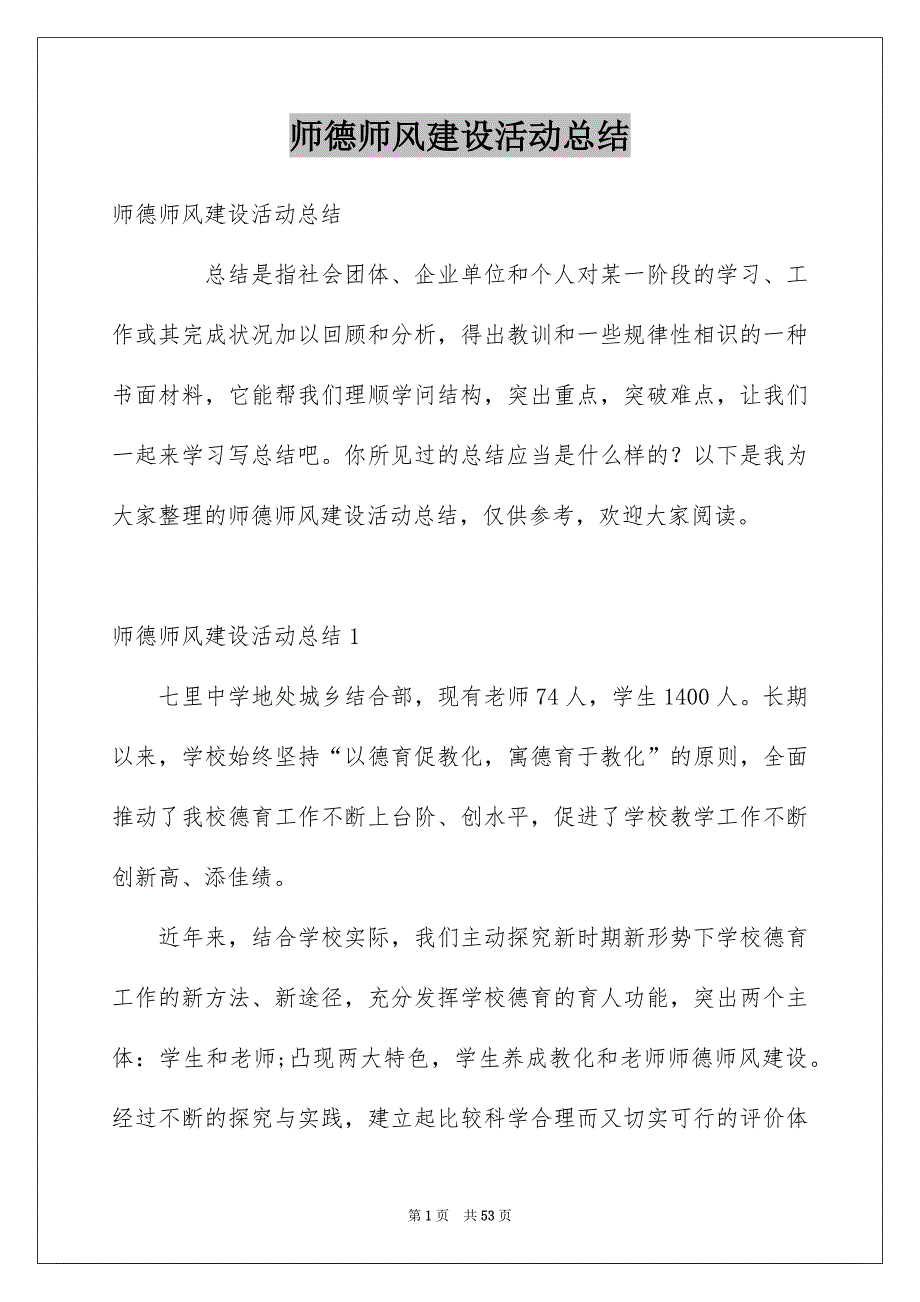 师德师风建设活动总结
师德师风建设活动总结
总结是指社会团体、企业单位和个人对某一阶段的学习、工
作或其完成状况加以回顾和分析，得出教训和一些规律性相识的一种
书面材料，它能帮我们理顺学问结构，突出重点，突破难点，让我们
一起来学习写总结吧。你所见过的总结应当是什么样的？以下是我为
大家整理的师德师风建设活动总结，仅供参考，欢迎大家阅读。
师德师风建设活动总结1
七里中学地处城乡结合部，现有老师74人，学生1400人。长期
以来，学校始终坚持“以德育促教化，寓德育于教化”的原则，全面
推动了我校德育工作不断上台阶、创水平，促进了学校教学工作不断
创新高、添佳绩。
近年来，结合学校实际，我们主动探究新时期新形势下学校德育
工作的新方法、新途径，充分发挥学校德育的育人功能，突出两个主
体：学生和老师;凸现两大特色，学生养成教化和老师师德师风建设。
经过不断的探究与实践，建立起比较科学合理而又切实可行的评价体
第1页 共53页